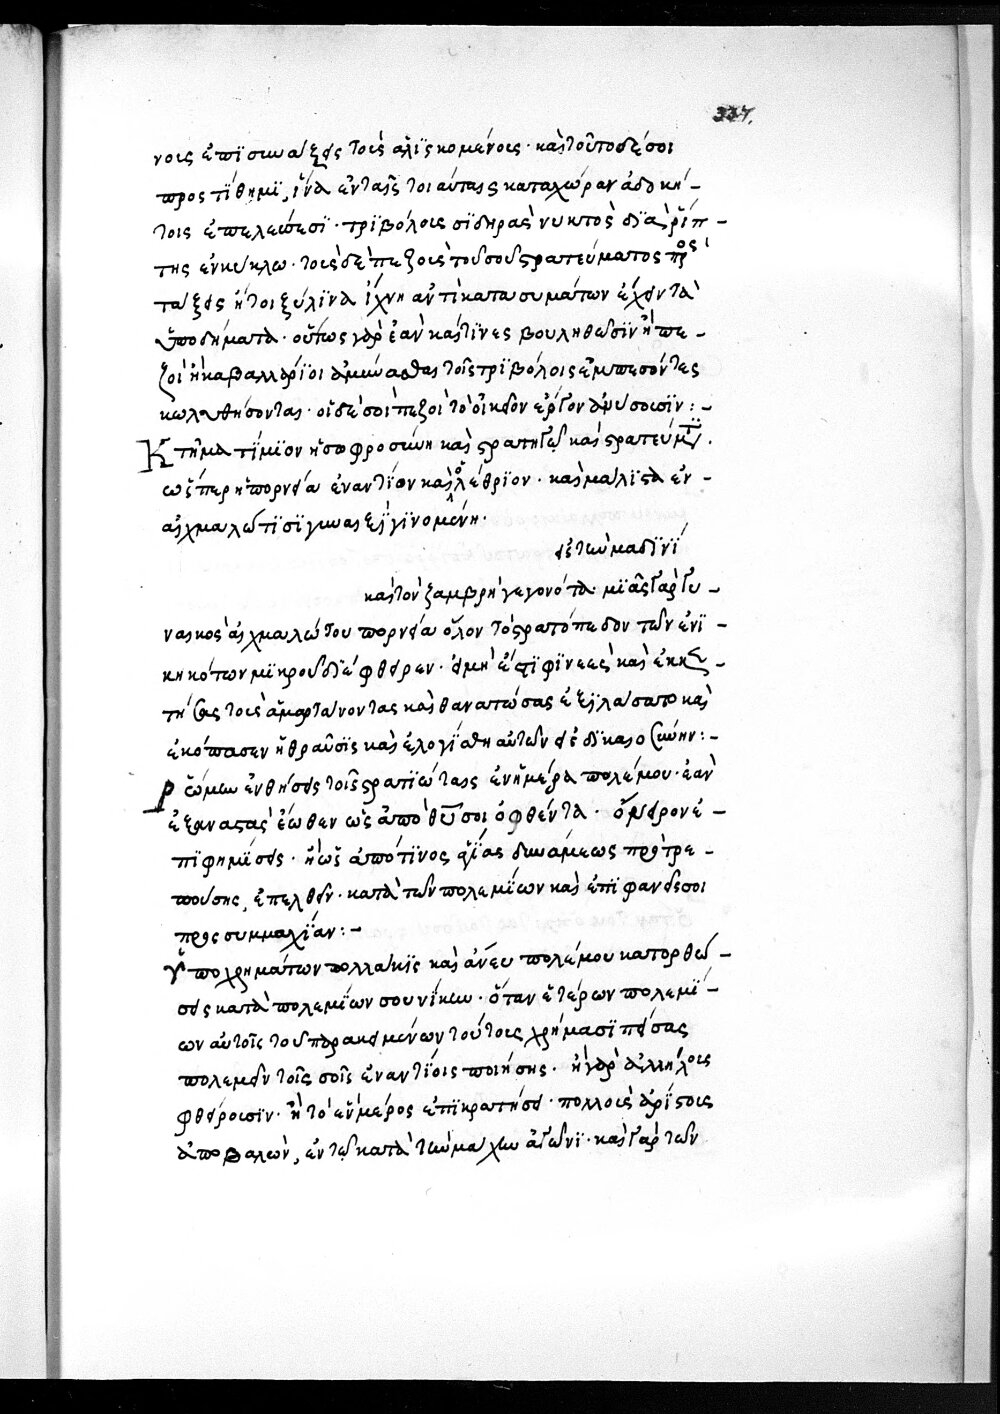 337.
νοις ἐπϊσυνάξεις τοῖς ἁλϊσκομένοις· καὶ τοῦτο δέ σοι
προστίθημϊ, ἵνα ἐν ταῖς τοιαύταις καταχώραν ἀδοκή–
τοις ἐπελεύσεσϊ· τρϊβόλοις σϊδηρὰς νυκτὸς δϊαρρίπ–
της ἐν κύκλω· τοῖς δὲ πεζοῖς τοῦ σοῦ στρατεύματος προσ
τάξεις ἤτοι ξύλϊνα ἴχνη ἀντὶ κατασυμάτων ἔχειν τὰ
ὑποδήματα· οὕτως γὰρ ἐὰν καὶ τϊνες βουληθῶσϊν ἢ πε–
ζοὶ ἢ καβαλλάρϊοι ἀμύνασθαι τοῖς τρϊβόλοις ἐμπεσόντες
κωλυθήσονται· οἱ δέ σοι πεζοὶ τὸ οἰκεῖον ἔργον ἀνύσουσϊν:–
Κτῆμα τίμϊον ἡ σωφροσύνη καὶ στρατηγῶ καὶ στρατεύματι.
ὥσπερ ἡ πορνεία ἐναντίον καὶ ὀλέθρϊον· καὶ μάλϊστα ἐν–
αἰχμαλώτϊσϊ γυναιξὶ γϊνομένη·
εἰς τὴν μαδϊνὶ
καὶ τὸν ζαμβρῆ γεγονότα· μϊᾶς γὰρ γυ–
ναικὸς αἰχμαλώτου πορνεία ὅλον τὸ στρατόπεδον τῶν ἐνϊ
κηκότων μϊκροῦ δϊέφθειρεν· εἰ μὴ ἐπϊφϊνεὲς καὶ ἐκκεν–
τήσας τοὺς ἁμαρτάνοντας καὶ θανατώσας ἐξϊλάσατο καὶ
ἐκόπασεν ἡ θραῦσϊς καὶ ἐλογίσθη αὐτῶν εἰς δϊκαιοσύνην:–
Ῥώμην ἐνθήσεις τοῖς στρατϊώταις ἐν ἡμέρα πολέμου· ἐὰν
ἐξαναστὰς ἕωθεν ὡς ἀπὸ θεοῦ σοι ὀφθέντα· ὄνειρον ἐ–
πϊφημίσεις· ἢ ὡς ἀπό τϊνος θείας δυνάμεως προτρε–
πούσης, ἐπελθεῖν· κατὰ τῶν πολεμίων καὶ ἐπϊφανείσοι
προς συμμαχίαν:–
Ὑπὸ χρημάτων πολλάκϊς καὶ ἄνευ πολέμου κατορθώ–
σεις κατὰ πολεμίων σου νίκην· ὅταν ἑτέρων πολεμί–
ων αὐτοῖς του παρακειμένων τούτοις χρήμασϊ πείσας
πολεμεῖν τοῖς σοῖς ἐναντίοις ποιήσης· ἢ γὰρ ἀλλήλοις
φθείρουσϊν· ἢ τὸ ἓν μέρος ἐπϊκρατήσει· πολλοὺς ἀρίστοις
ἀποβαλὼν, ἐν τῶ κατὰ τὴν μάχην ἀγῶνϊ· καὶ γὰρ τῶν